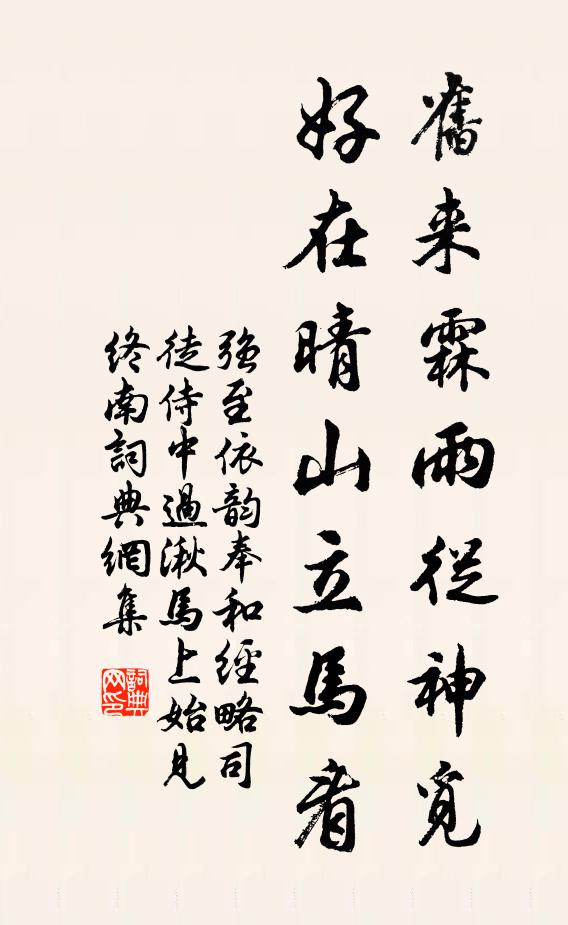 舊来霖雨從神覓
好在晴山立馬看
强至依韵奉和經略司
徒侍中過湫馬上始見
終南詞典網集
詞典网印